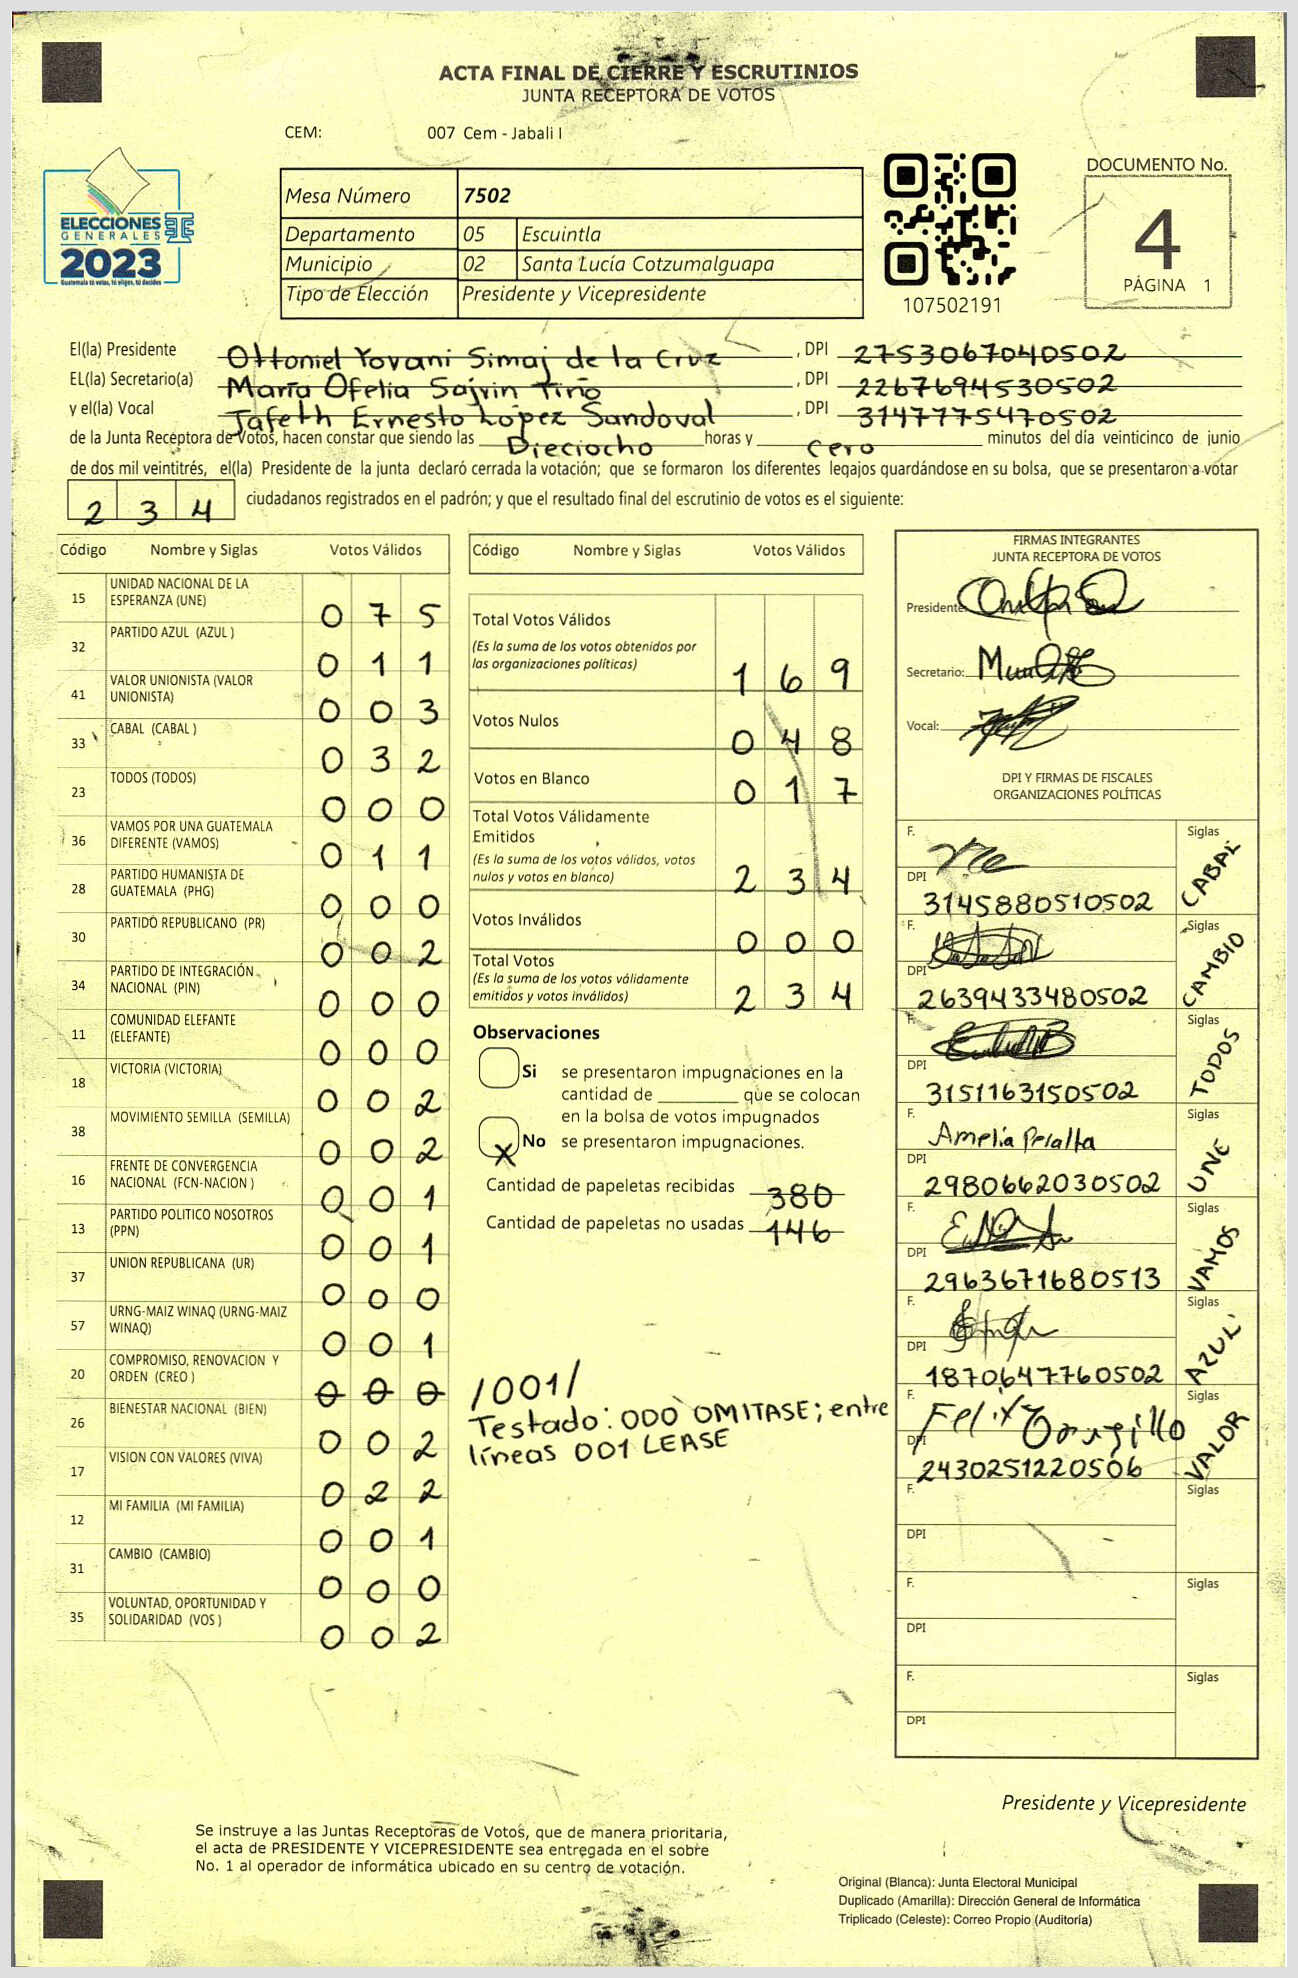 ACTA FINAL DE CIERRE Y ESCRUTINIOS
JUNTA RECEPTORA DE VOTOS
CEM: 007 Cem - Jabali I
ELECCIONES
GENERALES
2023
Guatemala tú votas, tú eliges, tú decides
Mesa Número 7502
Departamento 05 Escuintla
Municipio 02 Santa Lucía Cotzumalguapa
Tipo de Elección Presidente y Vicepresidente
107502191
DOCUMENTO No.
4
PÁGINA 1
El(la) Presidente Ottoniel Yovani Simaj de la Cruz , DPI 2753067040502
EL(la) Secretario(a) María Ofelia Sajvin Tiño , DPI 2267694530502
y el(la) Vocal Jafeth Ernesto López Sandoval , DPI 3147775470502
de la Junta Receptora de Votos, hacen constar que siendo las Dieciocho horas y cero minutos del día veinticinco de junio
de dos mil veintitrés, el(la) Presidente de la junta declaró cerrada la votación; que se formaron los diferentes legajos quardándose en su bolsa, que se presentaron a votar
2 3 4 ciudadanos registrados en el padrón; y que el resultado final del escrutinio de votos es el siguiente:
Código Nombre y Siglas Votos Válidos
15 UNIDAD NACIONAL DE LA
ESPERANZA (UNE) 0 7 5
32 PARTIDO AZUL (AZUL ) 0 1 1
41 VALOR UNIONISTA (VALOR
UNIONISTA) 0 0 3
33 CABAL (CABAL ) 0 3 2
23 TODOS (TODOS) 0 0 0
36 VAMOS POR UNA GUATEMALA
DIFERENTE (VAMOS) 0 1 1
28 PARTIDO HUMANISTA DE
GUATEMALA (PHG) 0 0 0
30 PARTIDO REPUBLICANO (PR) 0 0 2
34 PARTIDO DE INTEGRACIÓN
NACIONAL (PIN) 0 0 0
11 COMUNIDAD ELEFANTE
(ELEFANTE) 0 0 0
18 VICTORIA (VICTORIA) 0 0 2
38 MOVIMIENTO SEMILLA (SEMILLA) 0 0 2
16 FRENTE DE CONVERGENCIA
NACIONAL (FCN-NACION ) 0 0 1
13 PARTIDO POLITICO NOSOTROS
(PPN) 0 0 1
37 UNION REPUBLICANA (UR) 0 0 0
57 URNG-MAIZ WINAQ (URNG-MAIZ
WINAQ) 0 0 1
20 COMPROMISO, RENOVACION Y
ORDEN (CREO ) 0 0 0 /001/
26 BIENESTAR NACIONAL (BIEN) 0 0 2
17 VISION CON VALORES (VIVA) 0 2 2
12 MI FAMILIA (MI FAMILIA) 0 0 1
31 CAMBIO (CAMBIO) 0 0 0
35 VOLUNTAD, OPORTUNIDAD Y
SOLIDARIDAD (VOS ) 0 0 2
Código Nombre y Siglas Votos Válidos
Total Votos Válidos
(Es la suma de los votos obtenidos por
las organizaciones políticas) 1 6 9
Votos Nulos 0 4 8
Votos en Blanco 0 1 7
Total Votos Válidamente
Emitidos
(Es la suma de los votos válidos, votos
nulos y votos en blanco) 2 3 4
Votos Inválidos 0 0 0
Total Votos
(Es la suma de los votos válidamente
emitidos y votos inválidos) 2 3 4
Observaciones
Si se presentaron impugnaciones en la
cantidad de ________ que se colocan
en la bolsa de votos impugnados
X No se presentaron impugnaciones.
Cantidad de papeletas recibidas 380
Cantidad de papeletas no usadas 146
Testado: 000 OMITASE; entre
líneas 001 LEASE
FIRMAS INTEGRANTES
JUNTA RECEPTORA DE VOTOS
Presidente:
Secretario:
Vocal:
DPI Y FIRMAS DE FISCALES
ORGANIZACIONES POLÍTICAS
F. Siglas CABAL
DPI 3145880510502
F. Siglas CAMBIO
DPI 2639433480502
F. Siglas TODOS
DPI 3151163150502
F. Amelia Peralta Siglas UNE
DPI 2980662030502
F. Siglas VAMOS
DPI 2963671680513
F. Siglas AZUL
DPI 1870647760502
F. Felix Siglas VALOR
DPI 2430251220506
F. Siglas
DPI
F. Siglas
DPI
F. Siglas
DPI
Presidente y Vicepresidente
Se instruye a las Juntas Receptoras de Votos, que de manera prioritaria,
el acta de PRESIDENTE Y VICEPRESIDENTE sea entregada en el sobre
No. 1 al operador de informática ubicado en su centro de votación.
Original (Blanca): Junta Electoral Municipal
Duplicado (Amarilla): Dirección General de Informática
Triplicado (Celeste): Correo Propio (Auditoría)